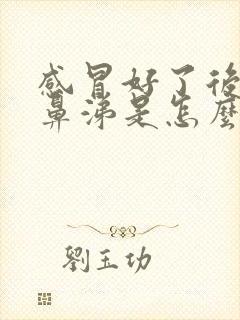 感冒好了後
鼻涕是怎麼
劉玉功